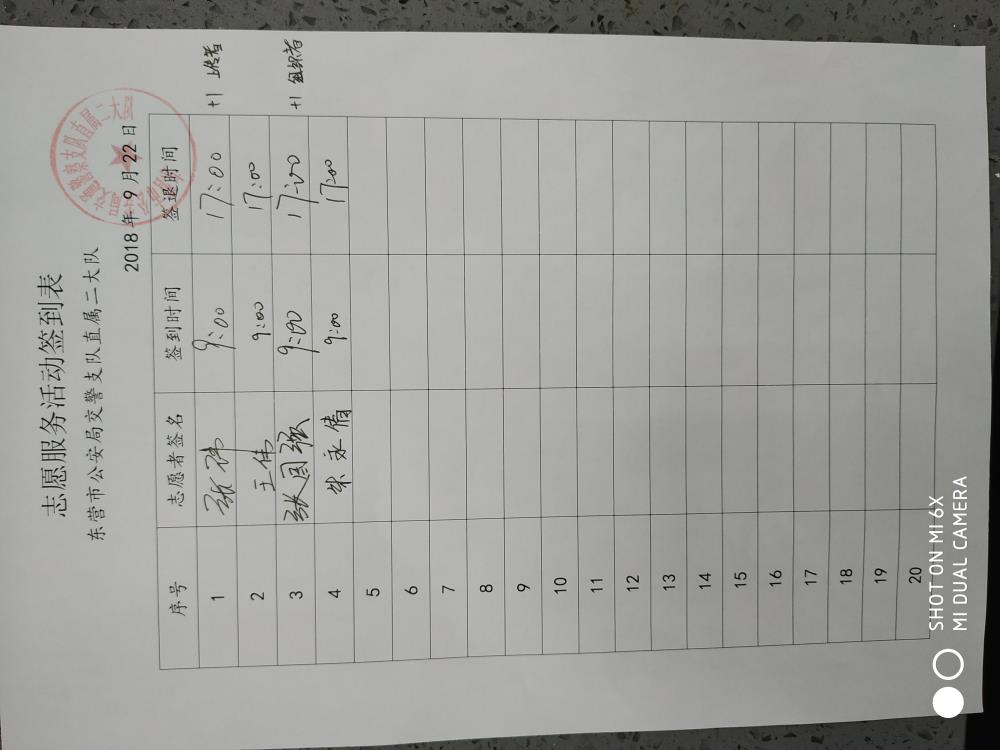 志愿服务活动签到表
东营市公安局交警支队直属二大队
2018 年 9 月 22 日
序号 志愿者签名 签到时间 签退时间
1 张祎 9:00 17:00 +1 上传者
2 王伟 9:00 17:00
3 张国强 9:00 17:00 +1 组织者
4 朱永倩 9:00 17:00
5
6
7
8
9
10
11
12
13
14
15
16
17
18
19
20
SHOT ON MI 6X
MI DUAL CAMERA